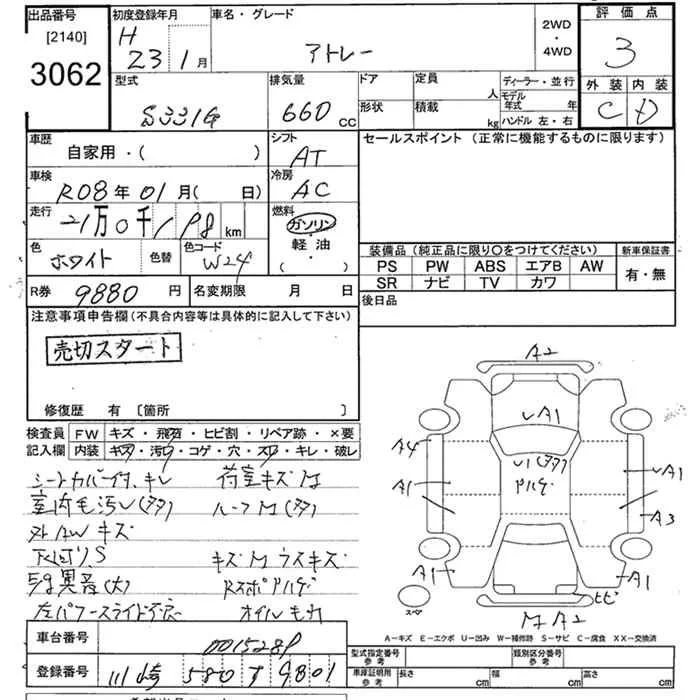 出品番号
[2140]
3062
初度登録年月
H 23 1月
車名・グレード
アトレー
2WD
・
4WD
評価点
3
外装 内装
C D
型式
S331G
排気量
660 CC
ドア
形状
定員
人
積載
kg
ディーラー・並行
モデル
年式 年
ハンドル 左・右
車歴
自家用・( )
シフト
AT
セールスポイント (正常に機能するものに限ります)
車検
R08年01月( 日)
冷房
AC
走行
21万0千 km
燃料
ガソリン
軽油
( ・ )
色
ホワイト
色替
色コード
W24
装備品 (純正品に限り〇をつけてください)
新車保証書
PS PW ABS エアB AW
SR ナビ TV カワ
有・無
R券 9880 円
名変期限 月 日
後日品
注意事項申告欄(不具合内容等は具体的に記入して下さい)
売切スタート
修復歴 有 〔箇所 〕
検査員
記入欄
FW キズ・飛石・ヒビ割・リペア跡・×要
内装 キズ・汚れ・コゲ・穴・スレ・キレ・破レ
シートカバー付、キレ
荷室キズM
室内毛汚レ(タタ)
ルーフM(タタ)
外AWキズ
下回り、S
キズMウスキズ
異音(大)
左パワースライド
オイルもれ
A2
A1
A4
A1
A1
A3
A1
A1
ヒビ
A2
スペア
A-キズ E-エクボ U-凹み W-補修跡 S-サビ C-腐食 XX-交換済
車台番号
0015289
登録番号
川崎 580 9801
型式指定番号
参考
類別区分番号
参考
車庫証明用
参考
長さ cm
幅 cm
高さ cm